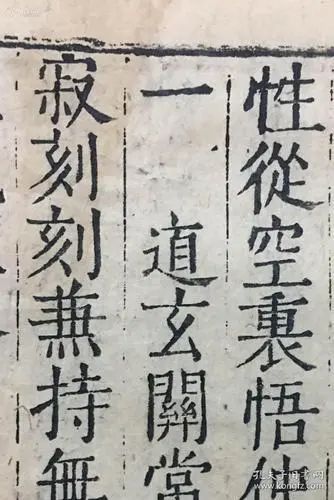 性從空裏悟
一　道玄關當
寂刻刻兼持無
孔夫子旧书网
kongfz.com